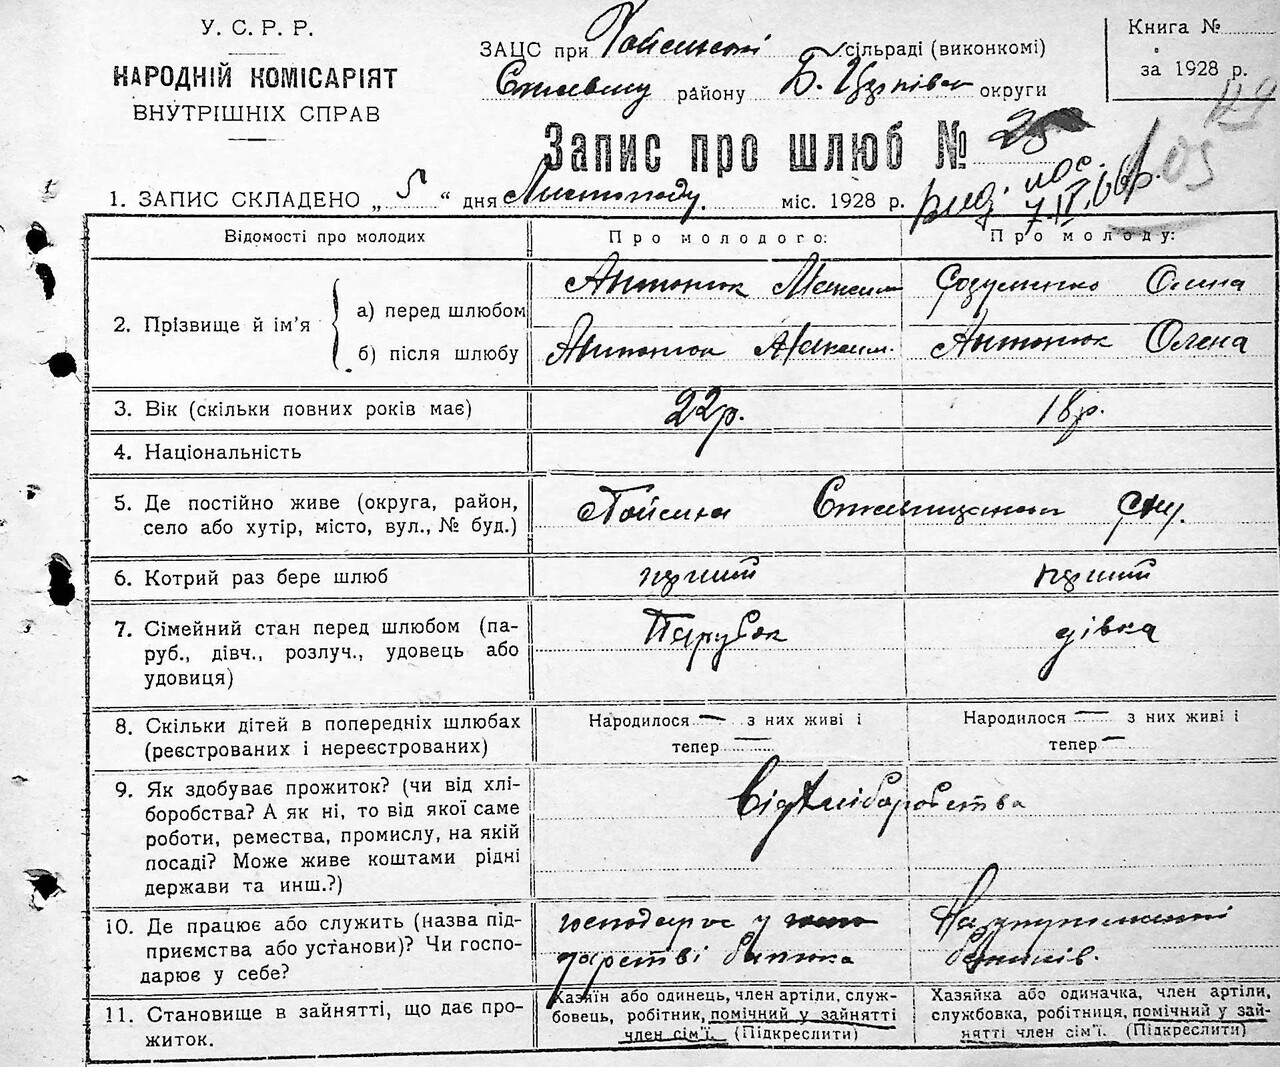 У. С. Р. Р.
НАРОДНІЙ КОМІСАРІЯТ
ВНУТРІШНІХ СПРАВ
ЗАЦС при сільраді (виконкомі)
району Б. Церківськ округи
Книга №
за 1928 р.
Запис про шлюб №
1. ЗАПИС СКЛАДЕНО „ 5 “ дня Листопаду. міс. 1928 р.
Відомості про молодих
Про молодого:
Про молоду:
2. Прізвище й ім’я
а) перед шлюбом
Антонюк Максим
Олена
б) після шлюбу
Антонюк Максим.
Антонюк Олена
3. Вік (скільки повних років має)
22 р.
18 р.
4. Національність
5. Де постійно живе (округа, район,
село або хутір, місто, вул., № буд.)
6. Котрий раз бере шлюб
перший
перший
7. Сімейний стан перед шлюбом (па-
руб., дівч., розлуч., удовець або
удовиця)
Парубок
дівка
8. Скільки дітей в попередніх шлюбах
(реєстрованих і нереєстрованих)
Народилося — з них живі і
тепер —
Народилося — з них живі і
тепер —
9. Як здобуває прожиток? (чи від хлі-
боробства? А як ні, то від якої саме
роботи, ремества, промислу, на якій
посаді? Може живе коштами рідні
держави та инш.?)
Від хліборобства
10. Де працює або служить (назва під-
приємства або установи)? Чи госпо-
дарює у себе?
господарює у
дарстві батька
На утриманні
батьків.
11. Становище в зайнятті, що дає про-
житок.
Хазяїн або одинець, член артіли, служ-
бовець, робітник, помічний у зайнятті
член сім’ї. (Підкреслити)
Хазяйка або одиначка, член артіли,
службовка, робітниця, помічна у зай-
нятті член сім’ї. (Підкреслити)